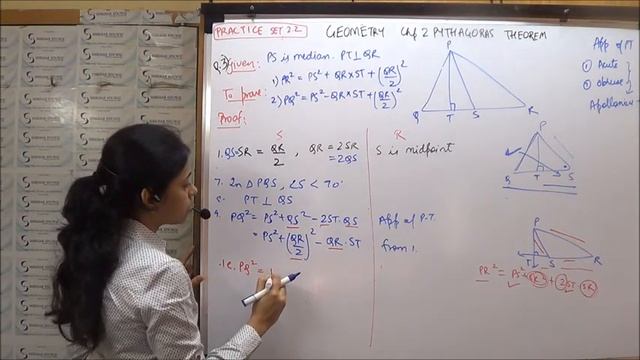 PRACTICE SET 2.2
GEOMETRY Ch/ 2 PYTHAGORAS THEOREM
Q.3) Given: PS is median. PT ⊥ QR
To prove: 1) PR² = PS² + QR × ST + (QR/2)²
2) PQ² = PS² - QR × ST + (QR/2)²
Proof:
S R
1. QS = SR = QR/2 , QR = 2SR S is midpoint
= 2QS
7. In Δ PQS, ∠S < 90°
8. PT ⊥ QS
9. PQ² = PS² + QS² - 2ST. QS App of P.T.
= PS² + (QR/2)² - QR . ST from 1.
i.e. PQ² =
P
Q T S R
App of PT
① Acute
② obtuse
Apollonius
P
Q T S
P
T S R
PR² = PS² + SR² + 2ST SR